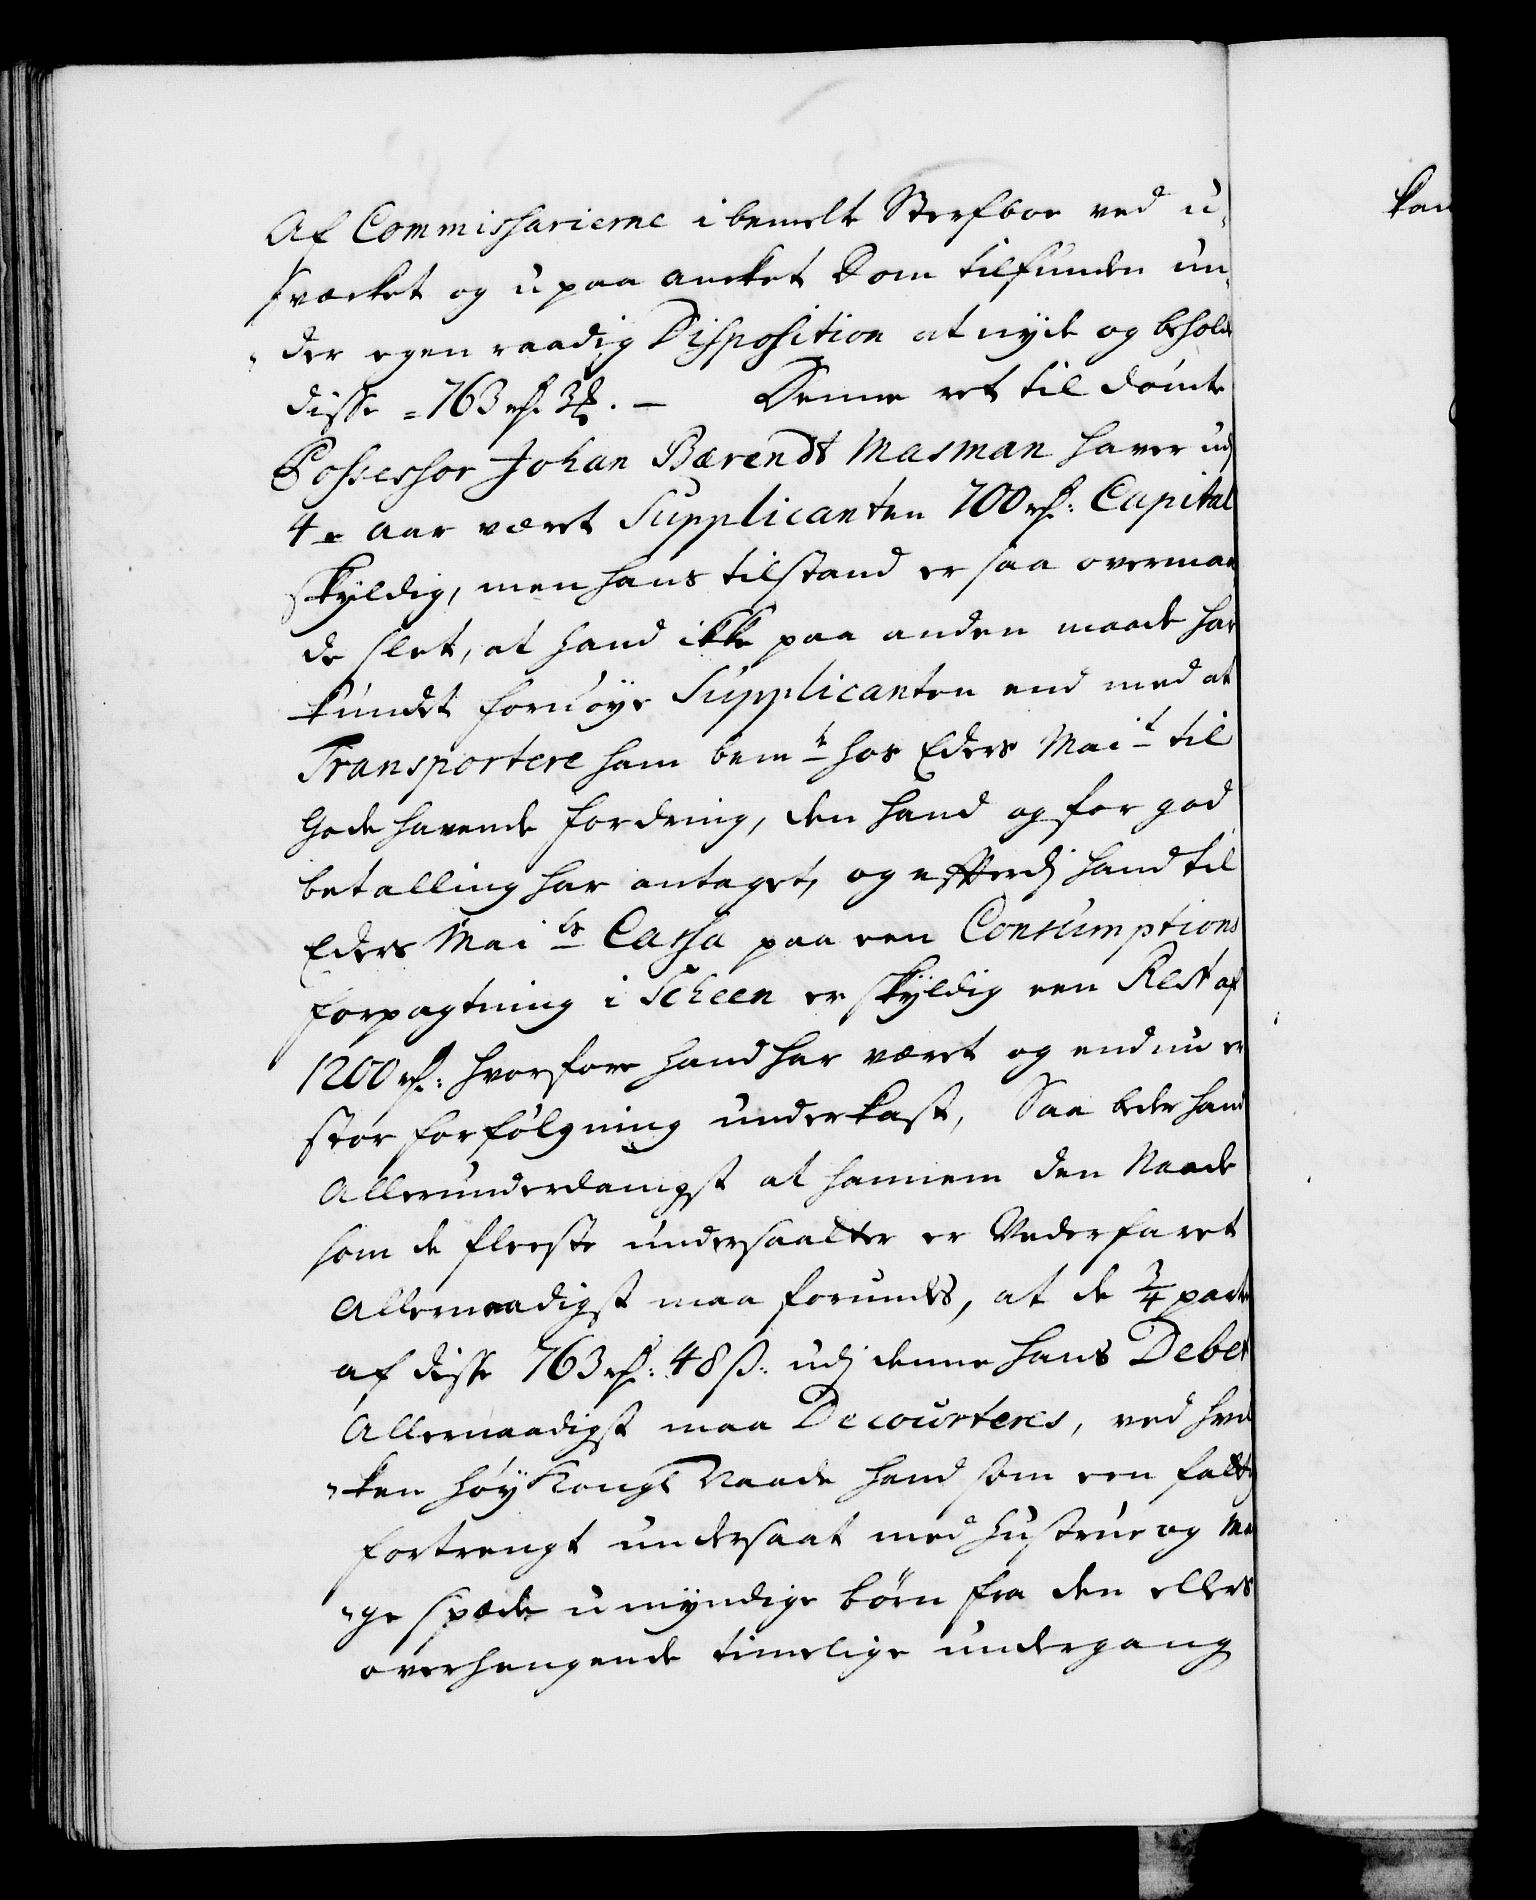 Af Commissarierne i bemelte Sterfboe ved u¬
svæcket og upaa ancket Dom tilfunden un¬
der egen raadig Disposition at nyde og beholde
disse 763 rd. 3 ß. – Denne ret til dømte
Possessor Johan Bærendt Masman haver udj
4re aar været Supplicanten 700 rd: Capital
skyldig, men hans tilstand er saa overmaa
de slet, at hand ikke paa anden maade har
kundet fornøye Supplicanten end med at
Transportere ham bemte hos Eders Mait til
Gode havende fordring, den hand og for god
betalling har antaget, og efftterdj hand til
Eders Maits Cassa paa een Consumptions
forpagtning i Scheen er skyldig een Rest af
1200 rd: hvorfore hand har været og endnu er
stor forfølgning underkast, Saa beder hand
Allerunderdanigst at hannem den Naade
som de fleeste undersaatter er Vederfaret
Allernaadigst maa forundes, at de 3/4 parte
af disse 763 rd: 48 ß: udj denne hans Debet
Allernaadigst maa Decourteres, ved hvil
ken høy Kongl Naade hand som een fattig
fortrengt undersaat med Hustrue og Man
ge spæde umyndige børn fra den ellers
overhengende timelige undergang
kan